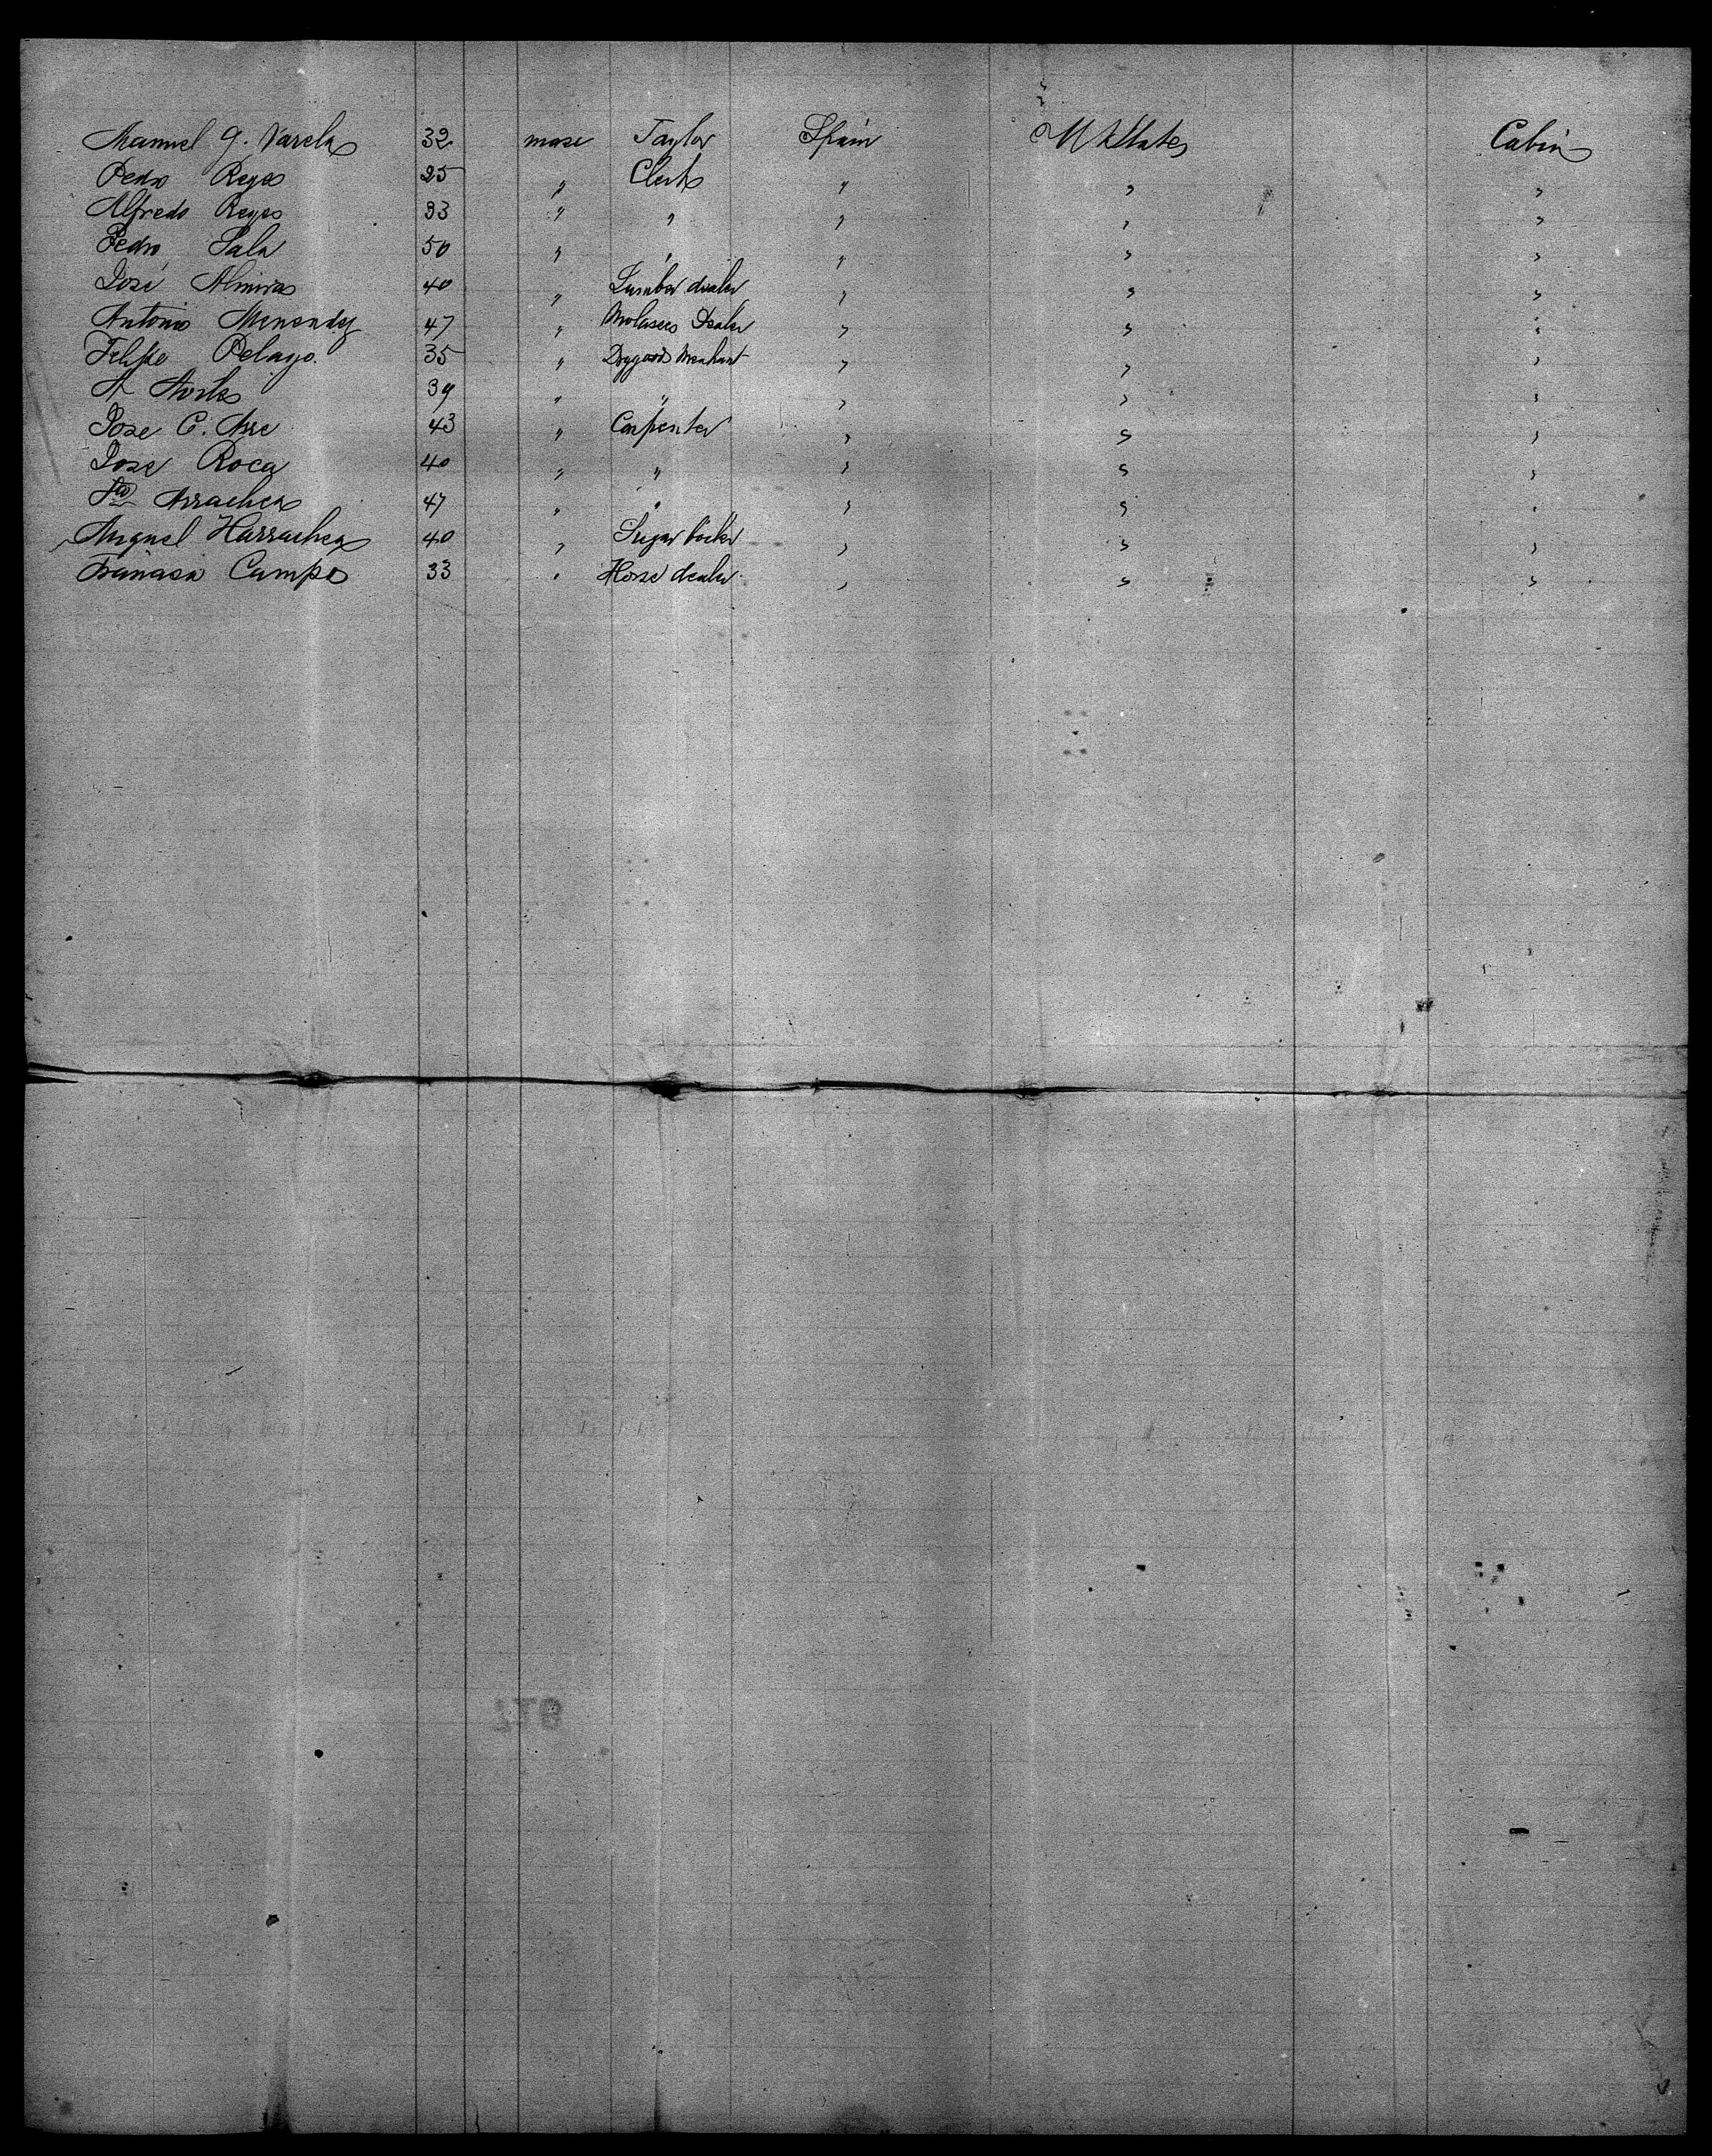 Manuel G. Varela 32 masc Taylor Spain U States Cabin
Pedro Reyes 25 " Clerk " " "
Alfredo Reyes 33 " " " " "
Pedro Sala 50 " " " " "
José Almiras 40 " Lumber dealer " " "
Antonio Menendez 47 " Molasses Dealer " " "
Felipe Pelayo. 35 " Drygoods Merchant " " "
A 39 " " " " "
Jose C. Arre 43 " Carpenter " " "
Jose Roca 40 " " " " "
Arrachea 47 " " " " "
Miguel Harrachea 40 " Sugar " " "
Campo 33 " Horse dealer " " "